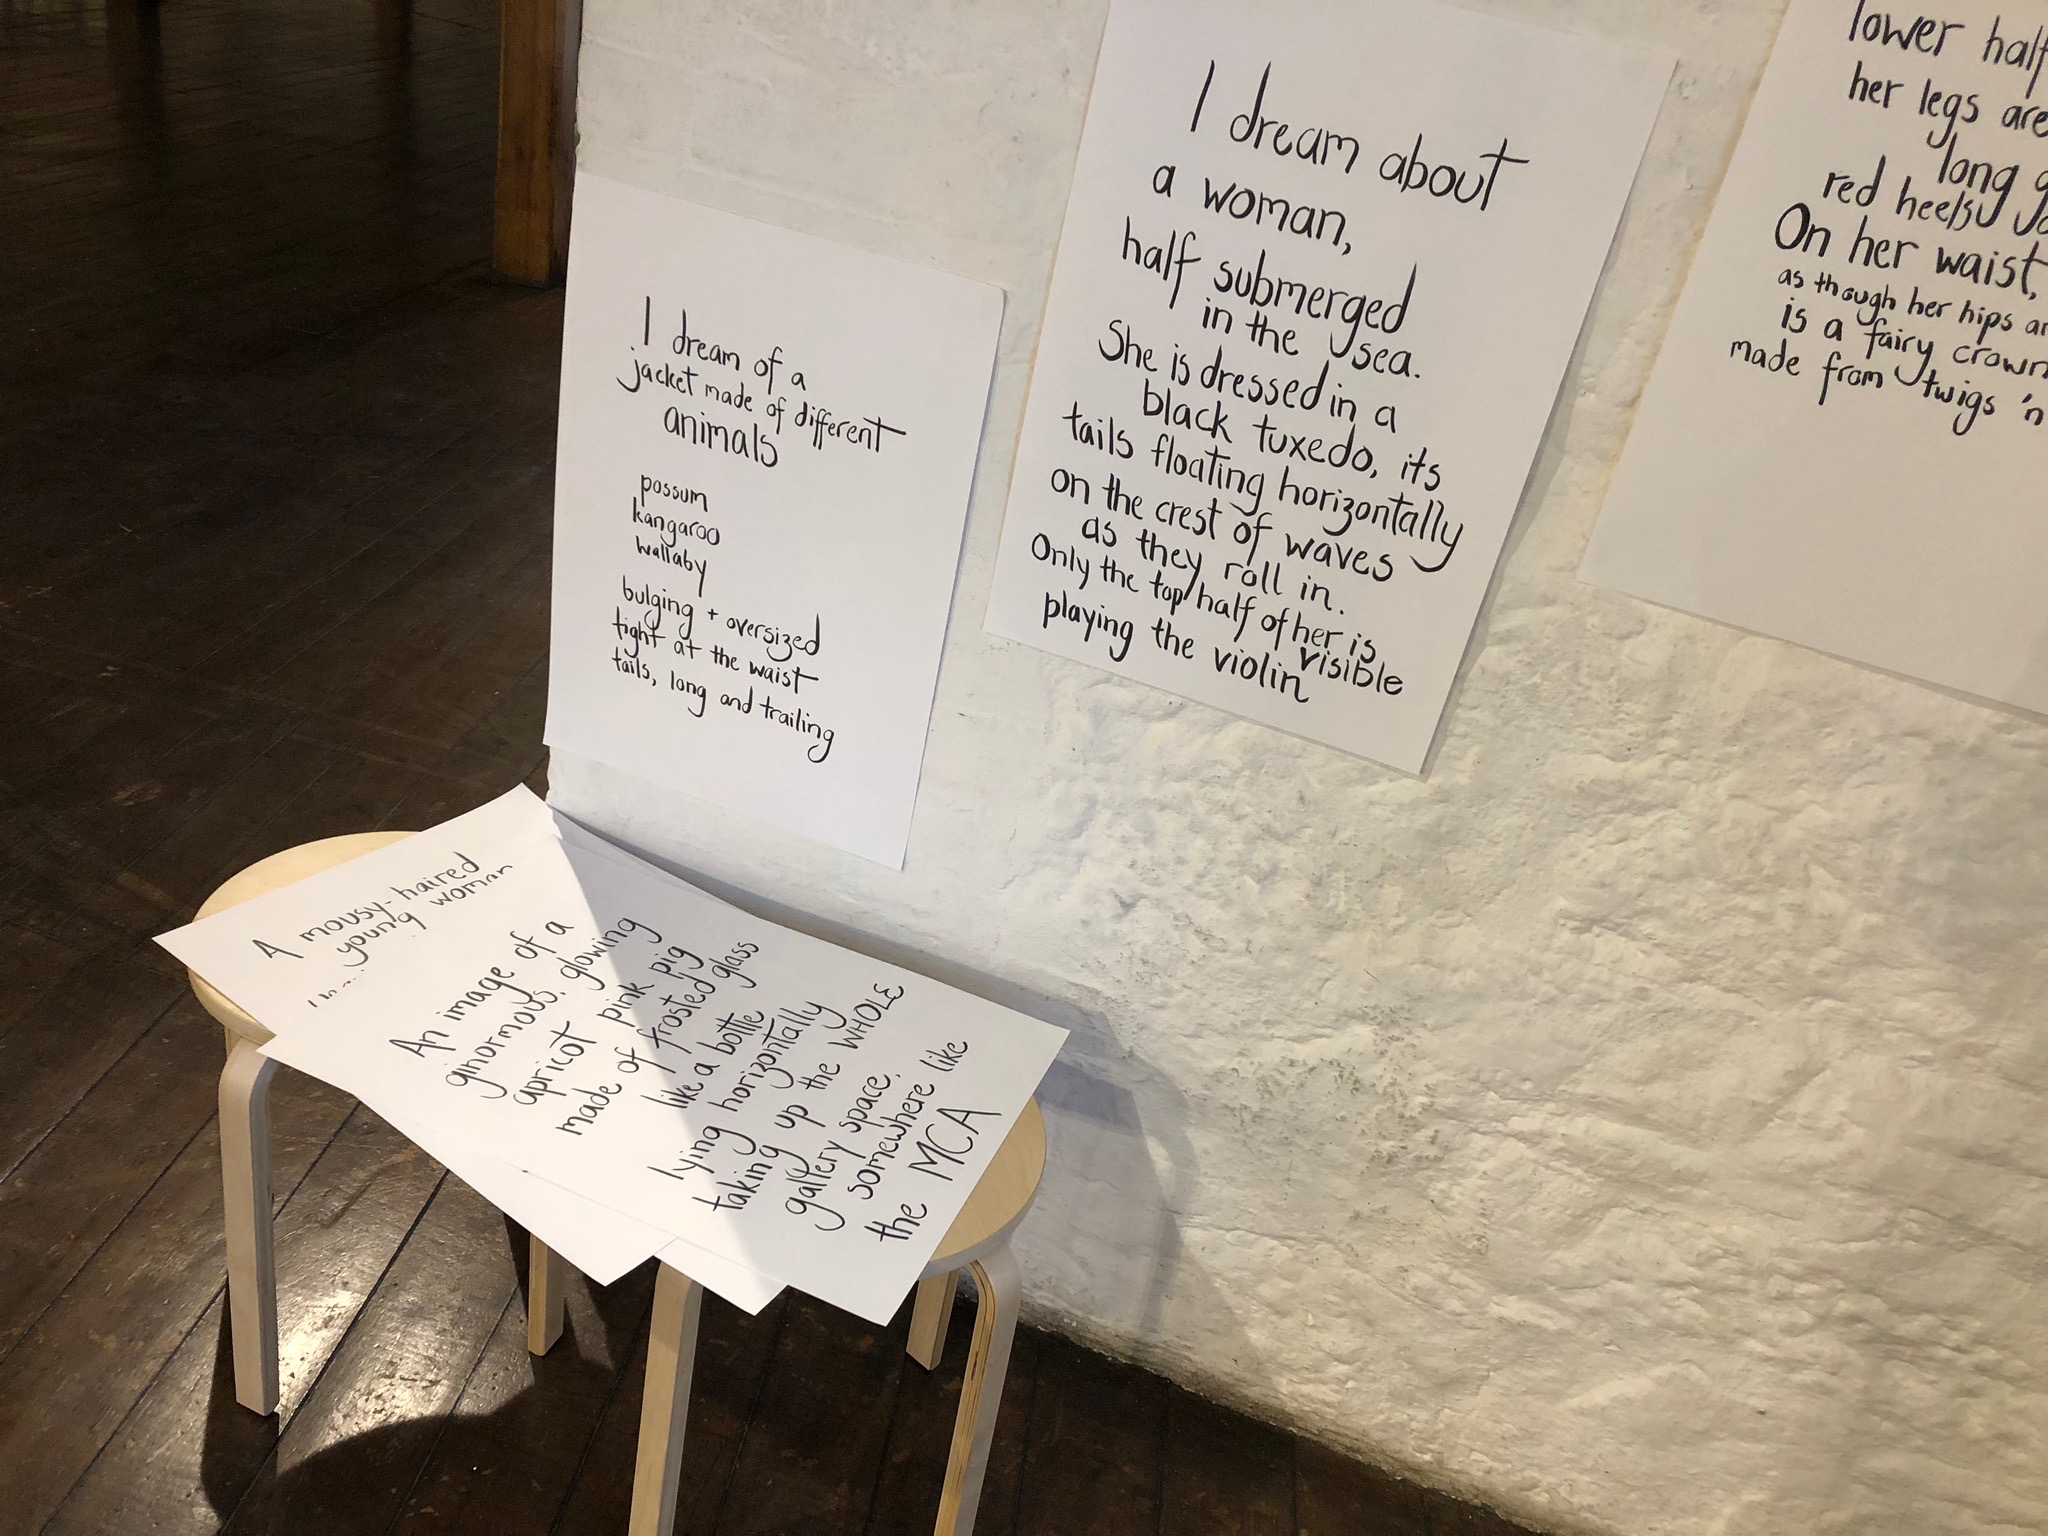 I dream of a
jacket made of different
animals
possum
kangaroo
wallaby
bulging + oversized
tight at the waist
tails, long and trailing
I dream about
a woman,
half submerged
in the sea.
She is dressed in a
black tuxedo, its
tails floating horizontally
on the crest of waves
as they roll in.
Only the top half of her is
visible
playing the violin
lower half
her legs are
long
red heels
On her waist,
as though her hips
is a fairy crown
made from twigs 'n
A mousy-haired
young woman
An image of a
ginormous, glowing
apricot pink pig
made of frosted glass
like a bottle
lying horizontally
taking up the WHOLE
gallery space,
somewhere like
the MCA